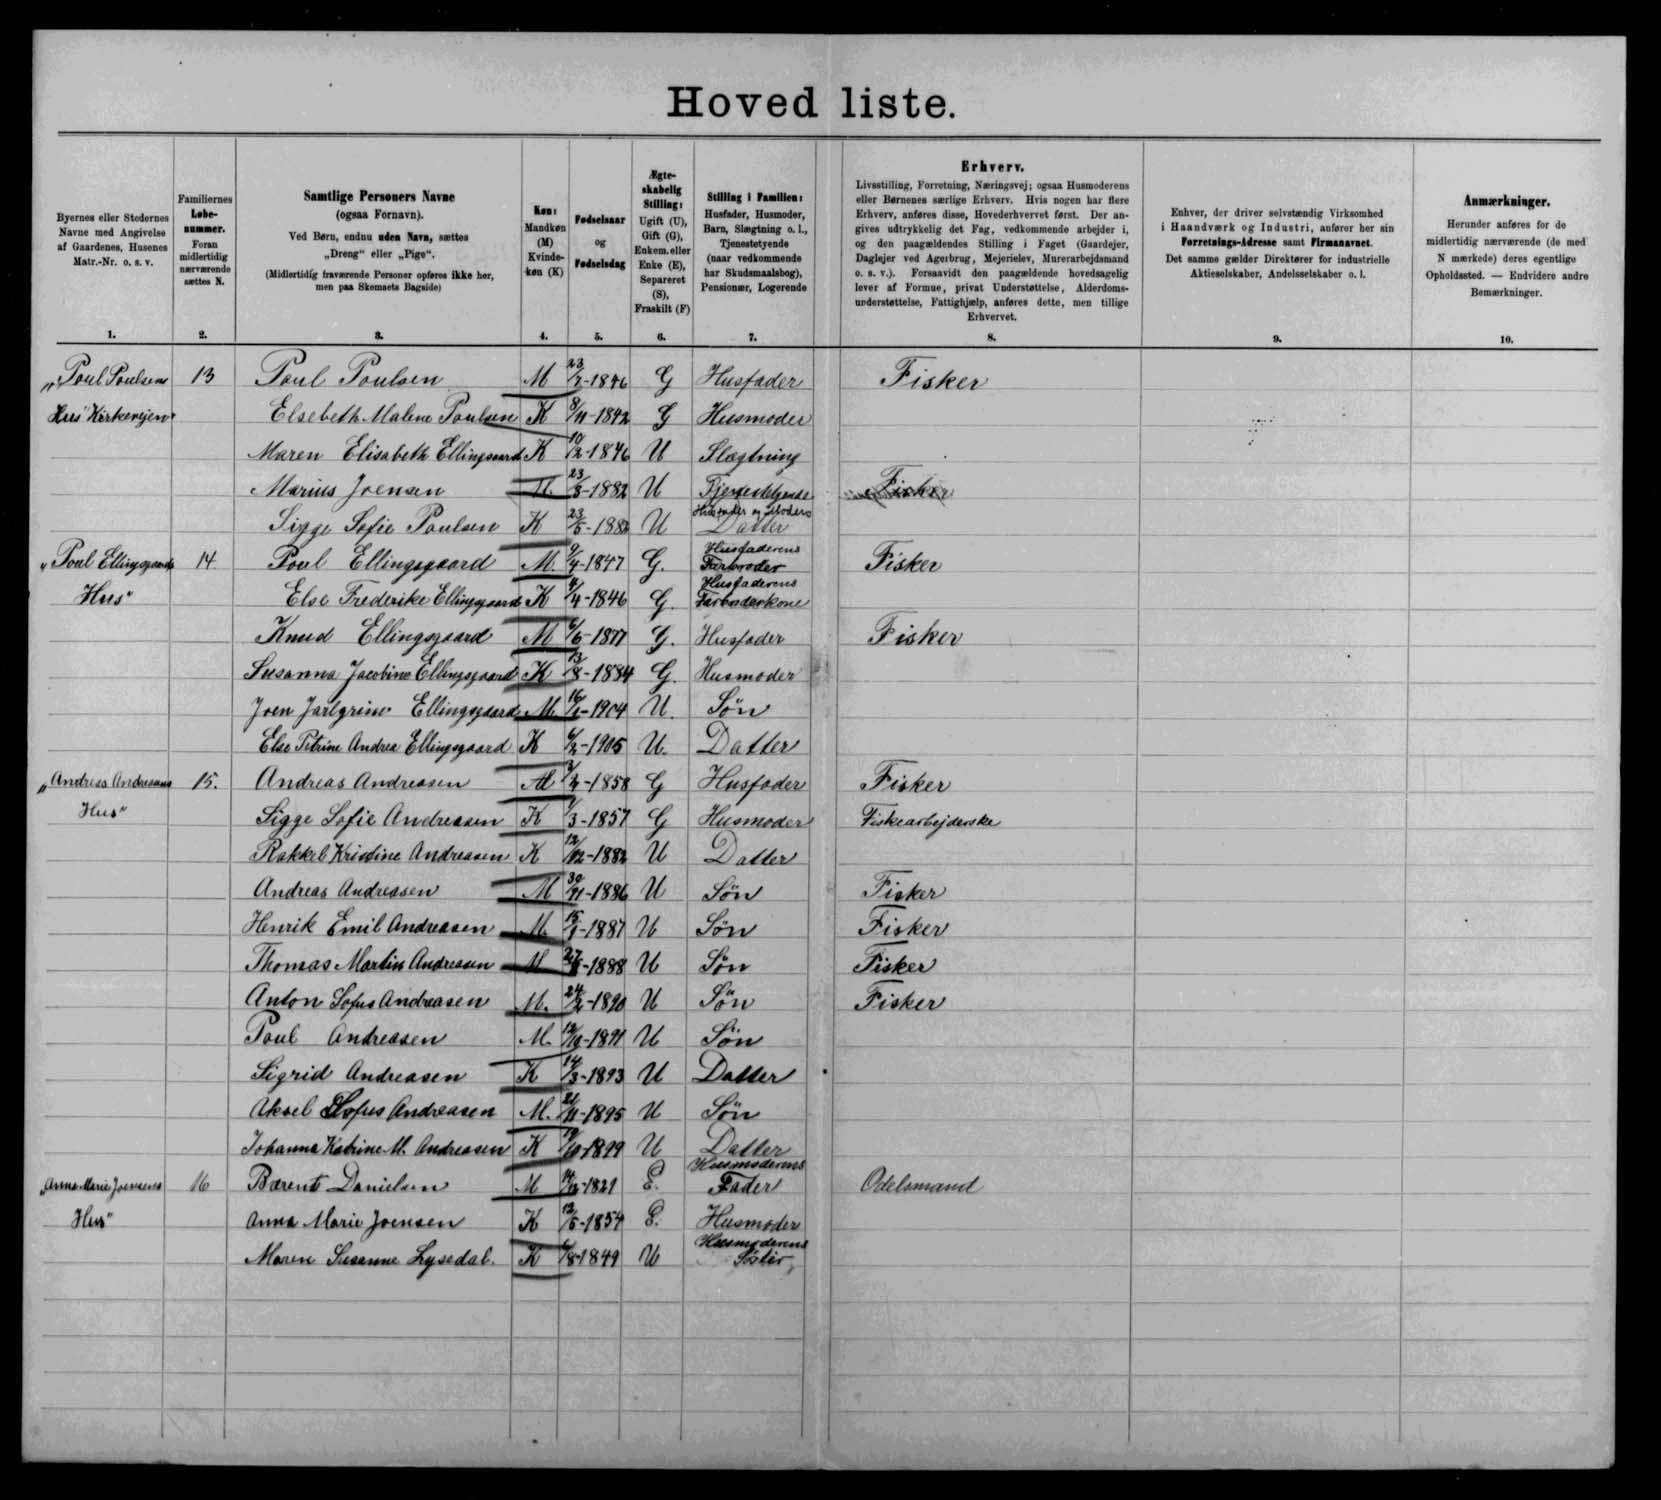 Hovedliste.
Byernes eller Stedernes
Navne med Angivelse
af Gaardenes, Husenes
Matr.-Nr. o. s. v.
1.
Familiernes
Løbe-
nummer.
Foran
midlertidig
nærværende
sættes N.
2.
Samtlige Personers Navne
(ogsaa Fornavn).
Ved Børn, endnu uden Navn, sættes
„Dreng" eller „Pige".
(Midlertidig fraværende Personer opføres ikke her,
men paa Skemaets Bagside)
3.
Køn:
Mandkøn
(M)
Kvinde-
køn (K)
4.
Fødselsaar
og
Fødselsdag
5.
Ægte-
skabelig
Stilling:
Ugift (U),
Gift (G),
Enkem. eller
Enke (E),
Separeret
(S),
Fraskilt (F)
6.
Stilling i Familien:
Husfader, Husmoder,
Barn, Slægtning o. l.,
Tjenestetyende
(naar vedkommende
har Skudsmaalsbog),
Pensionær, Logerende
7.
Erhverv.
Livsstilling, Forretning, Næringsvej; ogsaa Husmoderens
eller Børnenes særlige Erhverv. Hvis nogen har flere
Erhverv, anføres disse, Hovederhvervet først. Der an-
gives udtrykkelig det Fag, vedkommende arbejder i,
og den paagældendes Stilling i Faget (Gaardejer,
Daglejer ved Agerbrug, Mejerielev, Murerarbejdsmand
o. s. v.). Forsaavidt den paagældende hovedsagelig
lever af Formue, privat Understøttelse, Alderdoms-
understøttelse, Fattighjælp, anføres dette, men tillige
Erhvervet.
8.
Enhver, der driver selvstændig Virksomhed
i Haandværk og Industri, anfører her sin
Forretnings-Adresse samt Firmanavnet.
Det samme gælder Direktører for industrielle
Aktieselskaber, Andelsselskaber o. l.
9.
Anmærkninger.
Herunder anføres for de
midlertidig nærværende (de med
N mærkede) deres egentlige
Opholdssted. — Endvidere andre
Bemærkninger.
10.
„Poul Poulsens 13 Poul Poulsen M 23/2-1846 G Husfader Fisker
Hus Kirkevejen" Elsebeth Malene Poulsen K 8/11-1842 G Husmoder
Maren Elisabeth Ellingsgaard K 10/2-1876 U Slægtning
Marius Joensen M. 23/8-1882 U Tjenestetyende Fisker
Sigge Sofie Poulsen K 23/5-1882 U Husfader og Moders Datter
„Poul Ellingsgaards 14 Poul Ellingsgaard M. 9/4-1847 G. Husfaderens Farbroder Fisker
Hus" Else Frederike Ellingsgaard K 4/4-1846 G. Husfaderens Farbroderkone
Knud Ellingsgaard M 6/6-1877 G. Husfader Fisker
Susanna Jacobine Ellingsgaard K 13/8-1884 G. Husmoder
Joen Jarlgrim Ellingsgaard M. 16/1-1904 U. Søn
Else Petrine Andrea Ellingsgaard K 6/2-1905 U. Datter
„Andreas Andreasens 15. Andreas Andreasen M 1858 G Husfader Fisker
Hus" Sigge Sofie Andreasen K /3-1857 G Husmoder Fiskearbejderske
Rakkel Kristine Andreasen K 12/12-1882 U Datter
Andreas Andreasen M 30/11-1886 U Søn Fisker
Henrik Emil Andreasen M. 15/9-1887 U Søn Fisker
Thomas Martin Andreasen M 27/-1888 U Søn Fisker
Anton Sofus Andreasen M. 24/2-1890 U Søn Fisker
Poul Andreasen M. 12/10-1891 U Søn
Sigrid Andreasen K 14/3-1893 U Datter
Aksel Sofus Andreasen M. 21/11-1895 U Søn
Johanna Katrine M. Andreasen K 19/10-1899 U Datter
„Anna Marie Joensens 16 Bærent Danielsen M 14/12-1821 E. Husmoderens Fader Odelsmand
Hus" Anna Marie Joensen K 12/5-1854 E. Husmoder
Maren Susanne Lysedal. K /8-1849 U Husmoderens Søster